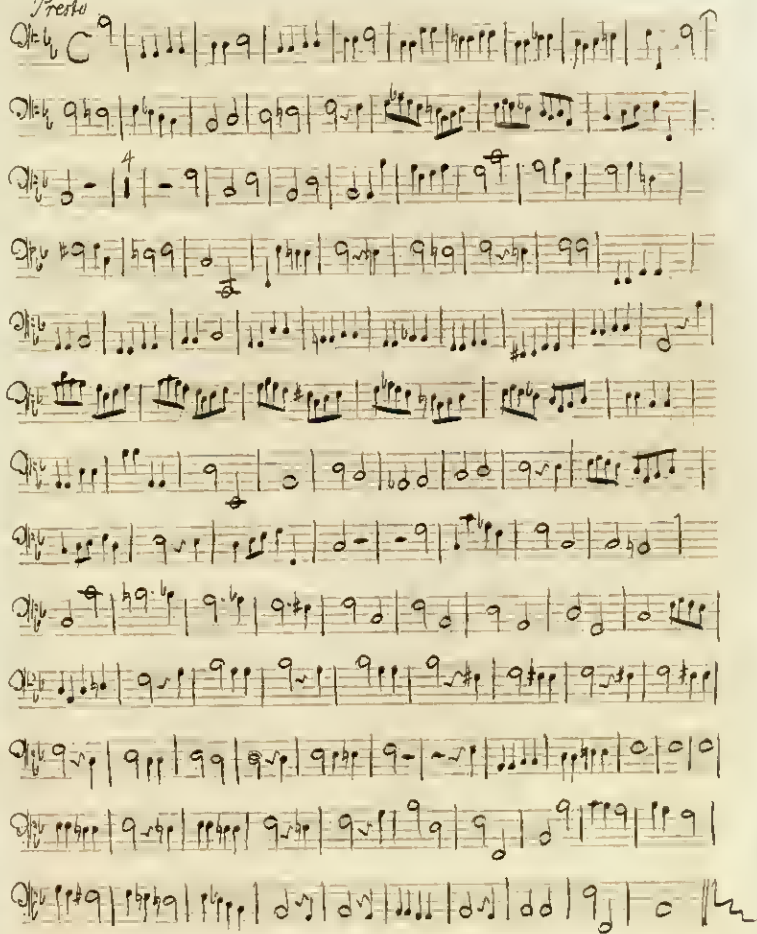 Presto
4